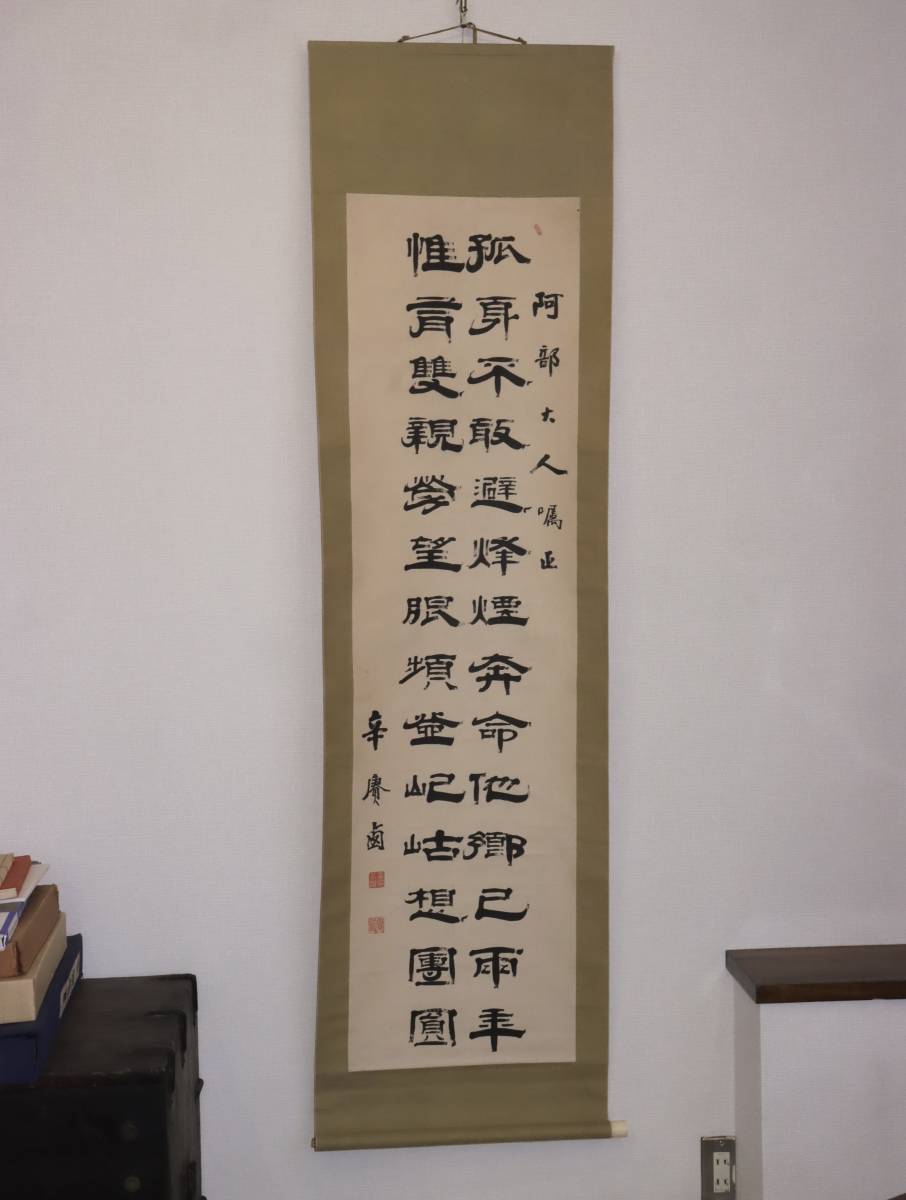 阿部大人囑正
孤身不敢避烽煙奔命他鄉已兩年
惟有雙親勞望眼頻登屺岵想團圓
辛賡鹵